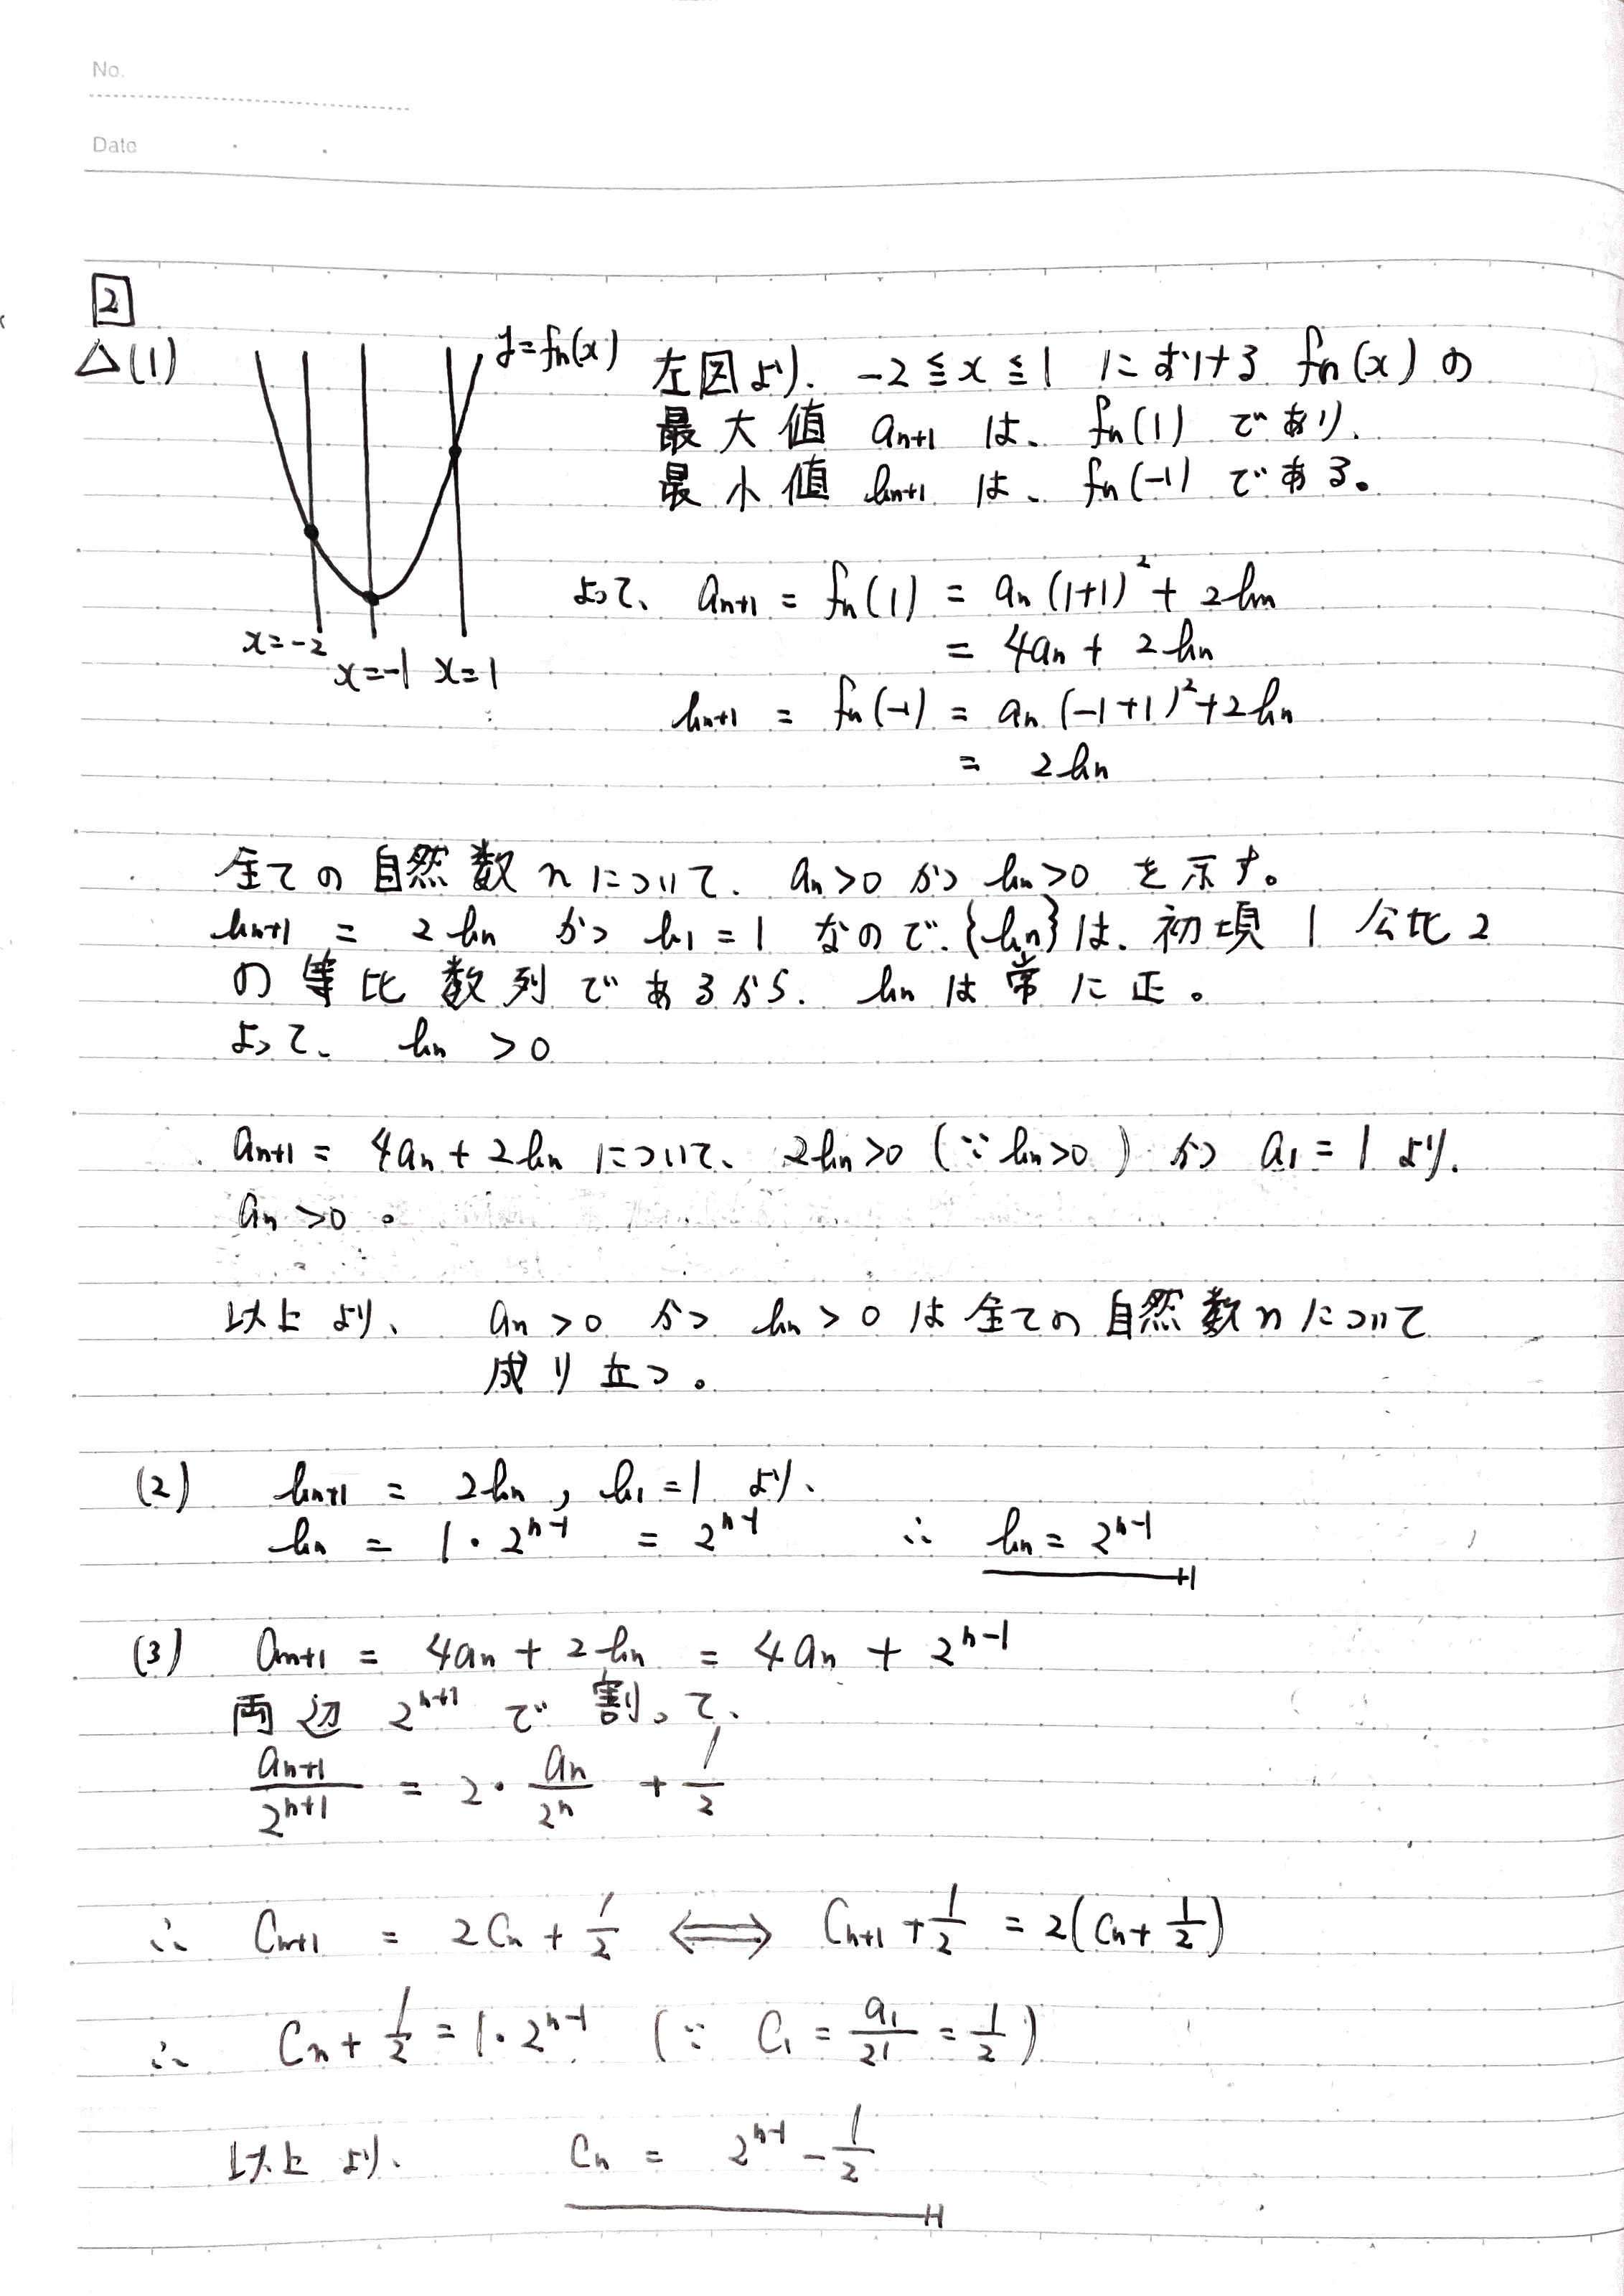 No.
Date
2
△(1)
y=fn(x)
x=-2
x=-1 x=1
左図より、 -2≦x≦1 における fn(x) の
最大値 an+1 は、 fn(1) であり、
最小値 bn+1 は、 fn(-1) である。
よって、 an+1 = fn(1) = an(1+1)² + 2bn
= 4an + 2bn
bn+1 = fn(-1) = an(-1+1)² + 2bn
= 2bn
全ての自然数nについて、 an>0 かつ bn>0 を示す。
bn+1 = 2bn かつ b1 = 1 なので、{bn}は、初項 1 公比 2
の等比数列であるから、 bn は常に正。
よって、 bn > 0
an+1 = 4an + 2bn について、 2bn>0 (∵ bn>0) かつ a1 = 1 より、
an > 0 。
以上より、 an > 0 かつ bn > 0 は全ての自然数nについて
成り立つ。
(2) bn+1 = 2bn , b1 = 1 より、
bn = 1・2^{n-1} = 2^{n-1} ∴ bn = 2^{n-1}
(3) an+1 = 4an + 2bn = 4an + 2^{n-1}
両辺 2^{n+1} で割って、
an+1/2^{n+1} = 2・an/2^n + 1/2
∴ Cn+1 = 2Cn + 1/2 ⟺ Cn+1 + 1/2 = 2(Cn + 1/2)
∴ Cn + 1/2 = 1・2^{n-1} (∵ C1 = a1/2^1 = 1/2)
以上より、 Cn = 2^{n-1} - 1/2